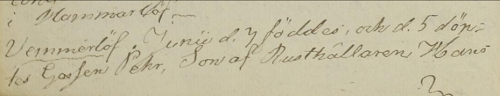 i Hammarlöf.
Vemmerlöf. Junii d. 4 föddes, och d. 5 döp-
tes Gossen Pehr, Son af Rusthållaren Hans